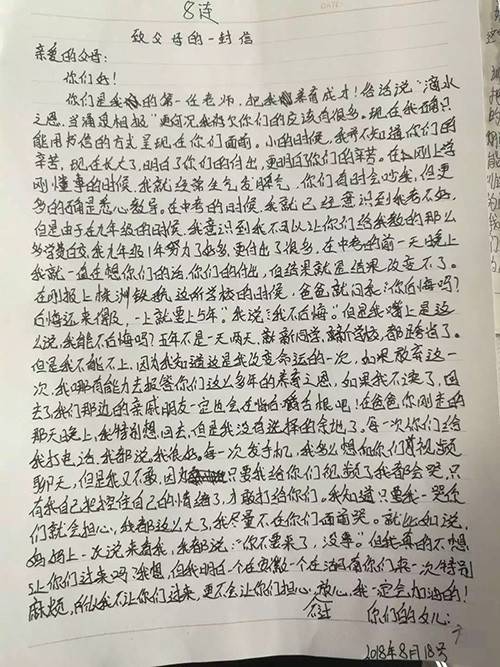 8连
致父母的一封信
亲爱的父母:
你们好!
你们是我的第一任老师,把我养育成才!俗话说"滴水
之恩,当涌泉相报"更何况我亏欠你们的应该有很多。现在我确只
能用书信的方式呈现在你们面前。小的时候,我并不知道你们的
辛苦,现在长大了,明白了你们的付出,更明白了你们的辛苦。在刚上学
刚懂事的时候,我就经常生气发脾气,你们有时会吵我,但更
多的确是悉心教导。在中考的时候,我就已经意识到我考不好,
但是由于在九年级的时候,我意识到我不可以让你们给我教的那么
多学费白交,我九年级1年努力了好多,更付出了很多,在中考的前一天晚上
我就一直在想你们的话,你们的付出,但结果就是结果改变不了。
在刚报上株洲铁航这所学校的时候,爸爸就问我:"你后悔吗?
后悔还来得及,一上就要上5年。"我说:"我不后悔。"但是我嘴上是这
么说,我能不后悔吗?五年不是一天两天,就新同学,新学校,都
但是我不能不上,因为我知道这是我改变命运的一次,如果放弃这一
次,我哪有能力去报答你们这么多年的养育之恩,如果我不读了,回
去了我们那边的亲戚朋友一定也会在背后嚼舌根吧!在爸爸,你刚走的
那天晚上,我特别想回去,但是我没有选择的余地了。每一次你们给
我打电话,我都说我很好。每一次发手机,我多么想和你们视频
聊天,但是我又不敢,因为只要我给你们视频了我都会哭,只
有我自己把控住自己的情绪了,才敢打给你们。我知道只要我一哭你
们就会担心,我都这么大了,我尽量不在你们面前哭。就比如说,
妈妈上一次说来看我,我都说:"你不要来了,没事。"但我真的不想
让你们过来吗?我想,但我明白一个在安徽一个在湖南你们来一次特别
麻烦,所以我不让你们过来,更不会让你们担心,放心,我一定会加油的!
你们的女儿:
2018年8月18号